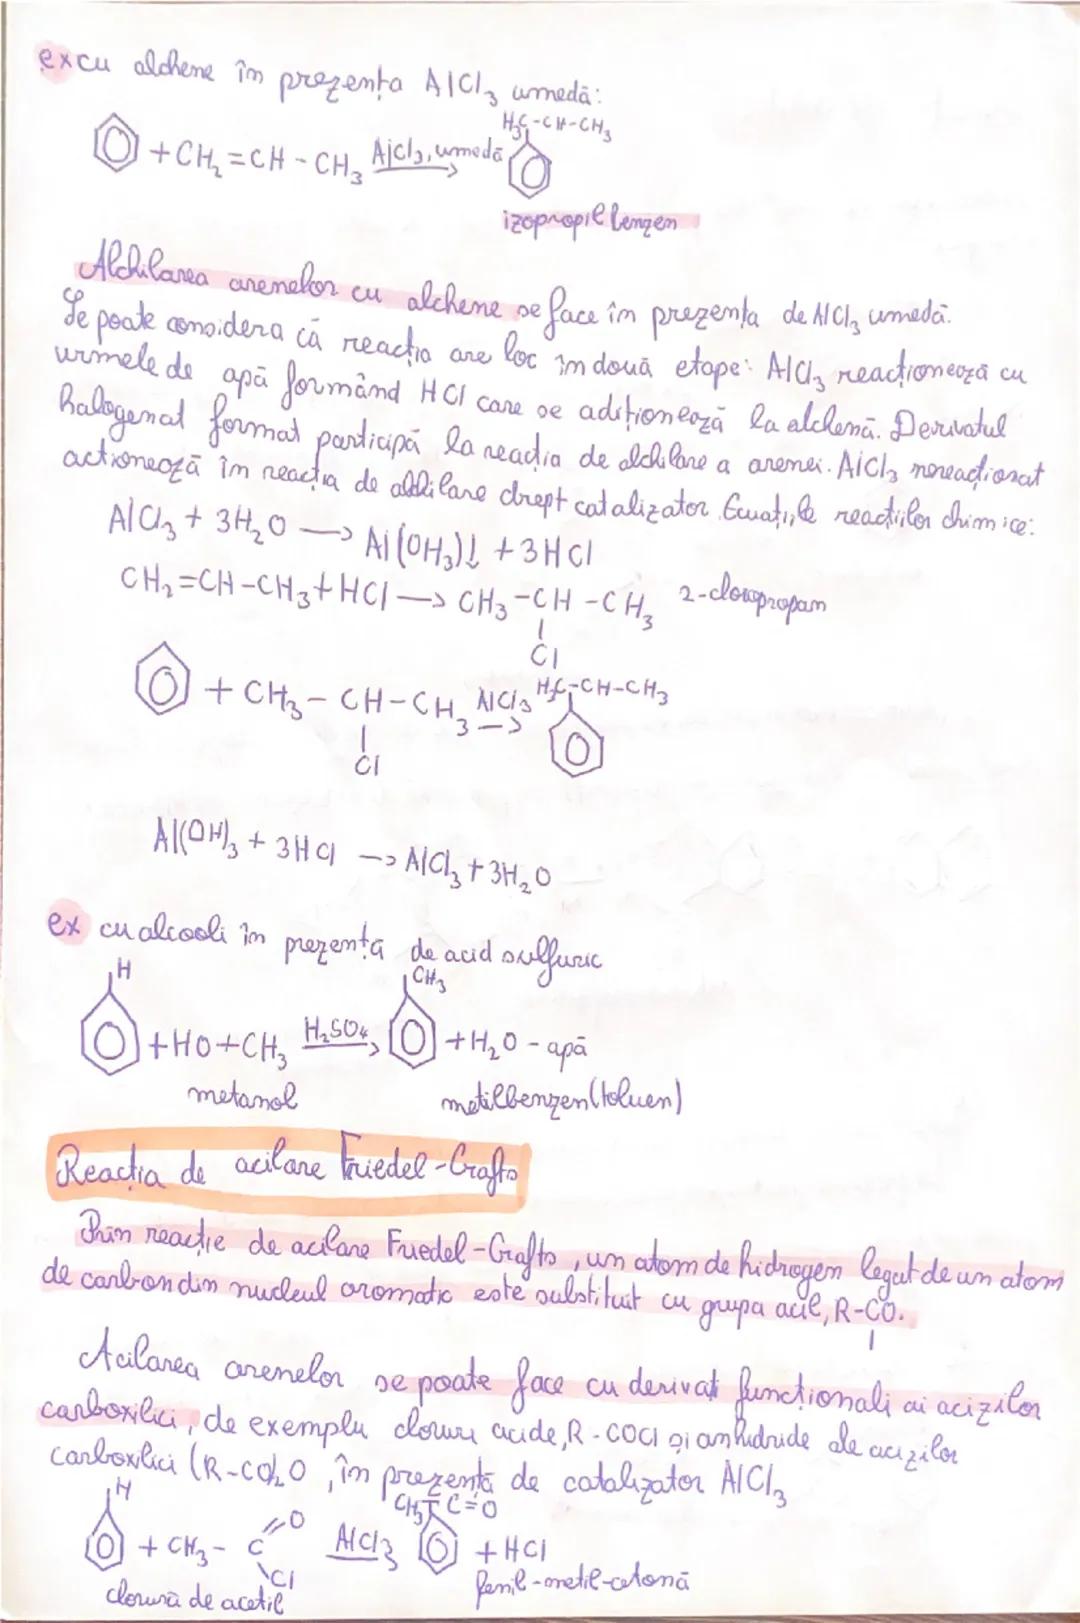 ex cu alchene în prezența AlCl₃ umedă:
H₃C-CH-CH₃
+ CH₂=CH-CH₃ AlCl₃, umedă →
izopropil benzen
Alchilarea arenelor cu alchene se face în prezența de AlCl₃ umedă.
Se poate considera că reacția are loc în două etape: AlCl₃ reacționează cu
urmele de apă formând HCl care se adiționează la alchenă. Derivatul
halogenat format participă la reacția de alchilare a arenei. AlCl₃ nereacționat
acționează în reacția de alchilare drept catalizator. Ecuațiile reacțiilor chimice:
AlCl₃ + 3H₂O → Al(OH₃)↓ + 3HCl
CH₂=CH-CH₃ + HCl → CH₃-CH-CH₃ 2-cloropropan
Cl
+ CH₃-CH-CH₃ AlCl₃ → H₃C-CH-CH₃
Cl
Al(OH)₃ + 3HCl → AlCl₃ + 3H₂O
ex cu alcooli în prezența de acid sulfuric
H CH₃
+ HO+CH₃ H₂SO₄ → + H₂O - apă
metanol metilbenzen (toluen)
Reacția de acilare Friedel-Crafts
Prin reacție de acilare Friedel-Crafts, un atom de hidrogen legat de un atom
de carbon din nucleul aromatic este substituit cu grupa acil, R-CO.
Acilarea arenelor se poate face cu derivați funcționali ai acizilor
carboxilici, de exemplu cloruri acide, R-COCl și anhidride ale acizilor
carboxilici (R-CO)₂O, în prezență de catalizator AlCl₃
H CH₃-C=O
+ CH₃-C O Cl AlCl₃ + HCl
clorură de acetil fenil-metil-cetonă